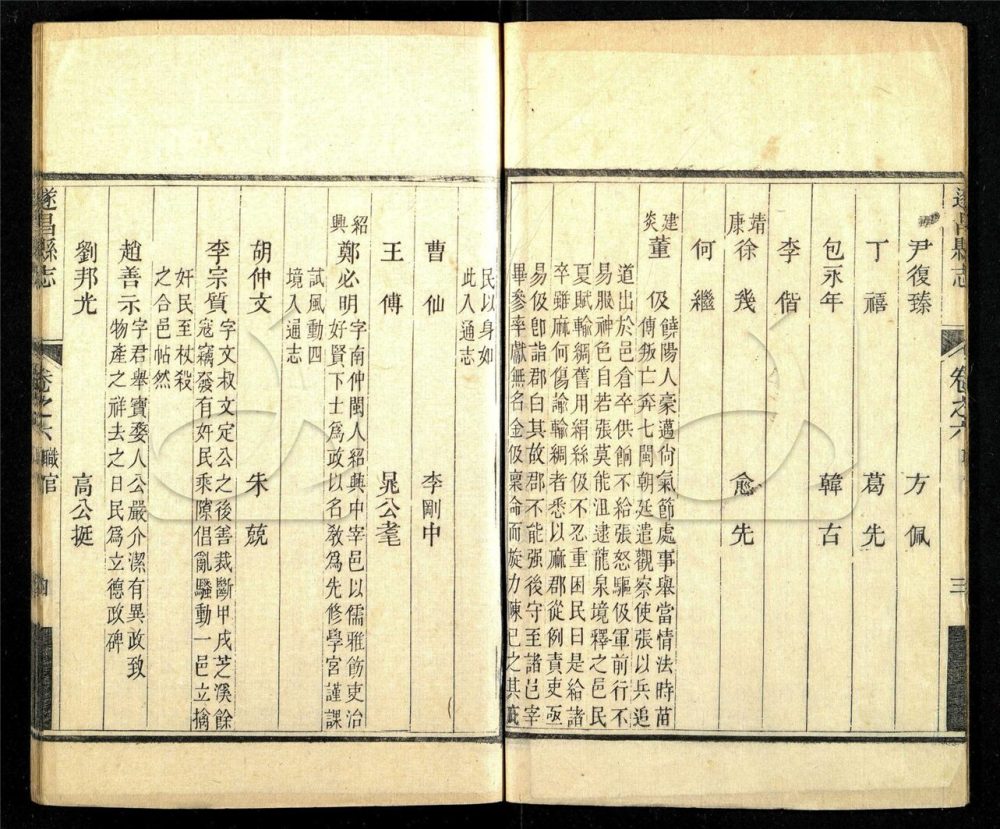 遂昌縣志 卷之六 三
尹復臻 方佩
丁禧 葛先
包永年 韓古
李偕
靖康 徐幾 愈先
何繼
建炎 董伋 饒陽人豪邁尙氣節處事舉當情法時苗
傅叛亡奔七閩朝廷遣觀察使張以兵追
道出於邑倉卒供餉不給張怒驅伋軍前行不
易服神色自若張莫能沮逮龍泉境釋之邑民
夏賦輸綢舊用絹絲伋不忍重困民曰是給諸
卒雖麻何傷諭輸綢者悉以麻郡從例責吏亟
易伋卽詣郡白其故郡不能强後守至諸邑宰
畢參率獻無名金伋稟命而旋力陳已之其疵
民以身如
此入通志
曹仙 李剛中
王傅 晁公耄
紹興 鄭必明 字南仲閩人紹興中宰邑以儒雅飭吏治
好賢下士爲政以名敎爲先修學宮謹課
試風動四
境入通志
胡仲文 朱兢
李宗質 字文叔文定公之後善裁斷甲戌芝溪餘
寇竊發有奸民乘隙倡亂騷動一邑立擒
奸民至杖殺
之合邑帖然
趙善示 字君舉寶婺人公嚴介潔有異政致
物產之祥去之日民爲立德政碑
劉邦光 高公挺
遂昌縣志 卷之六 職官 四